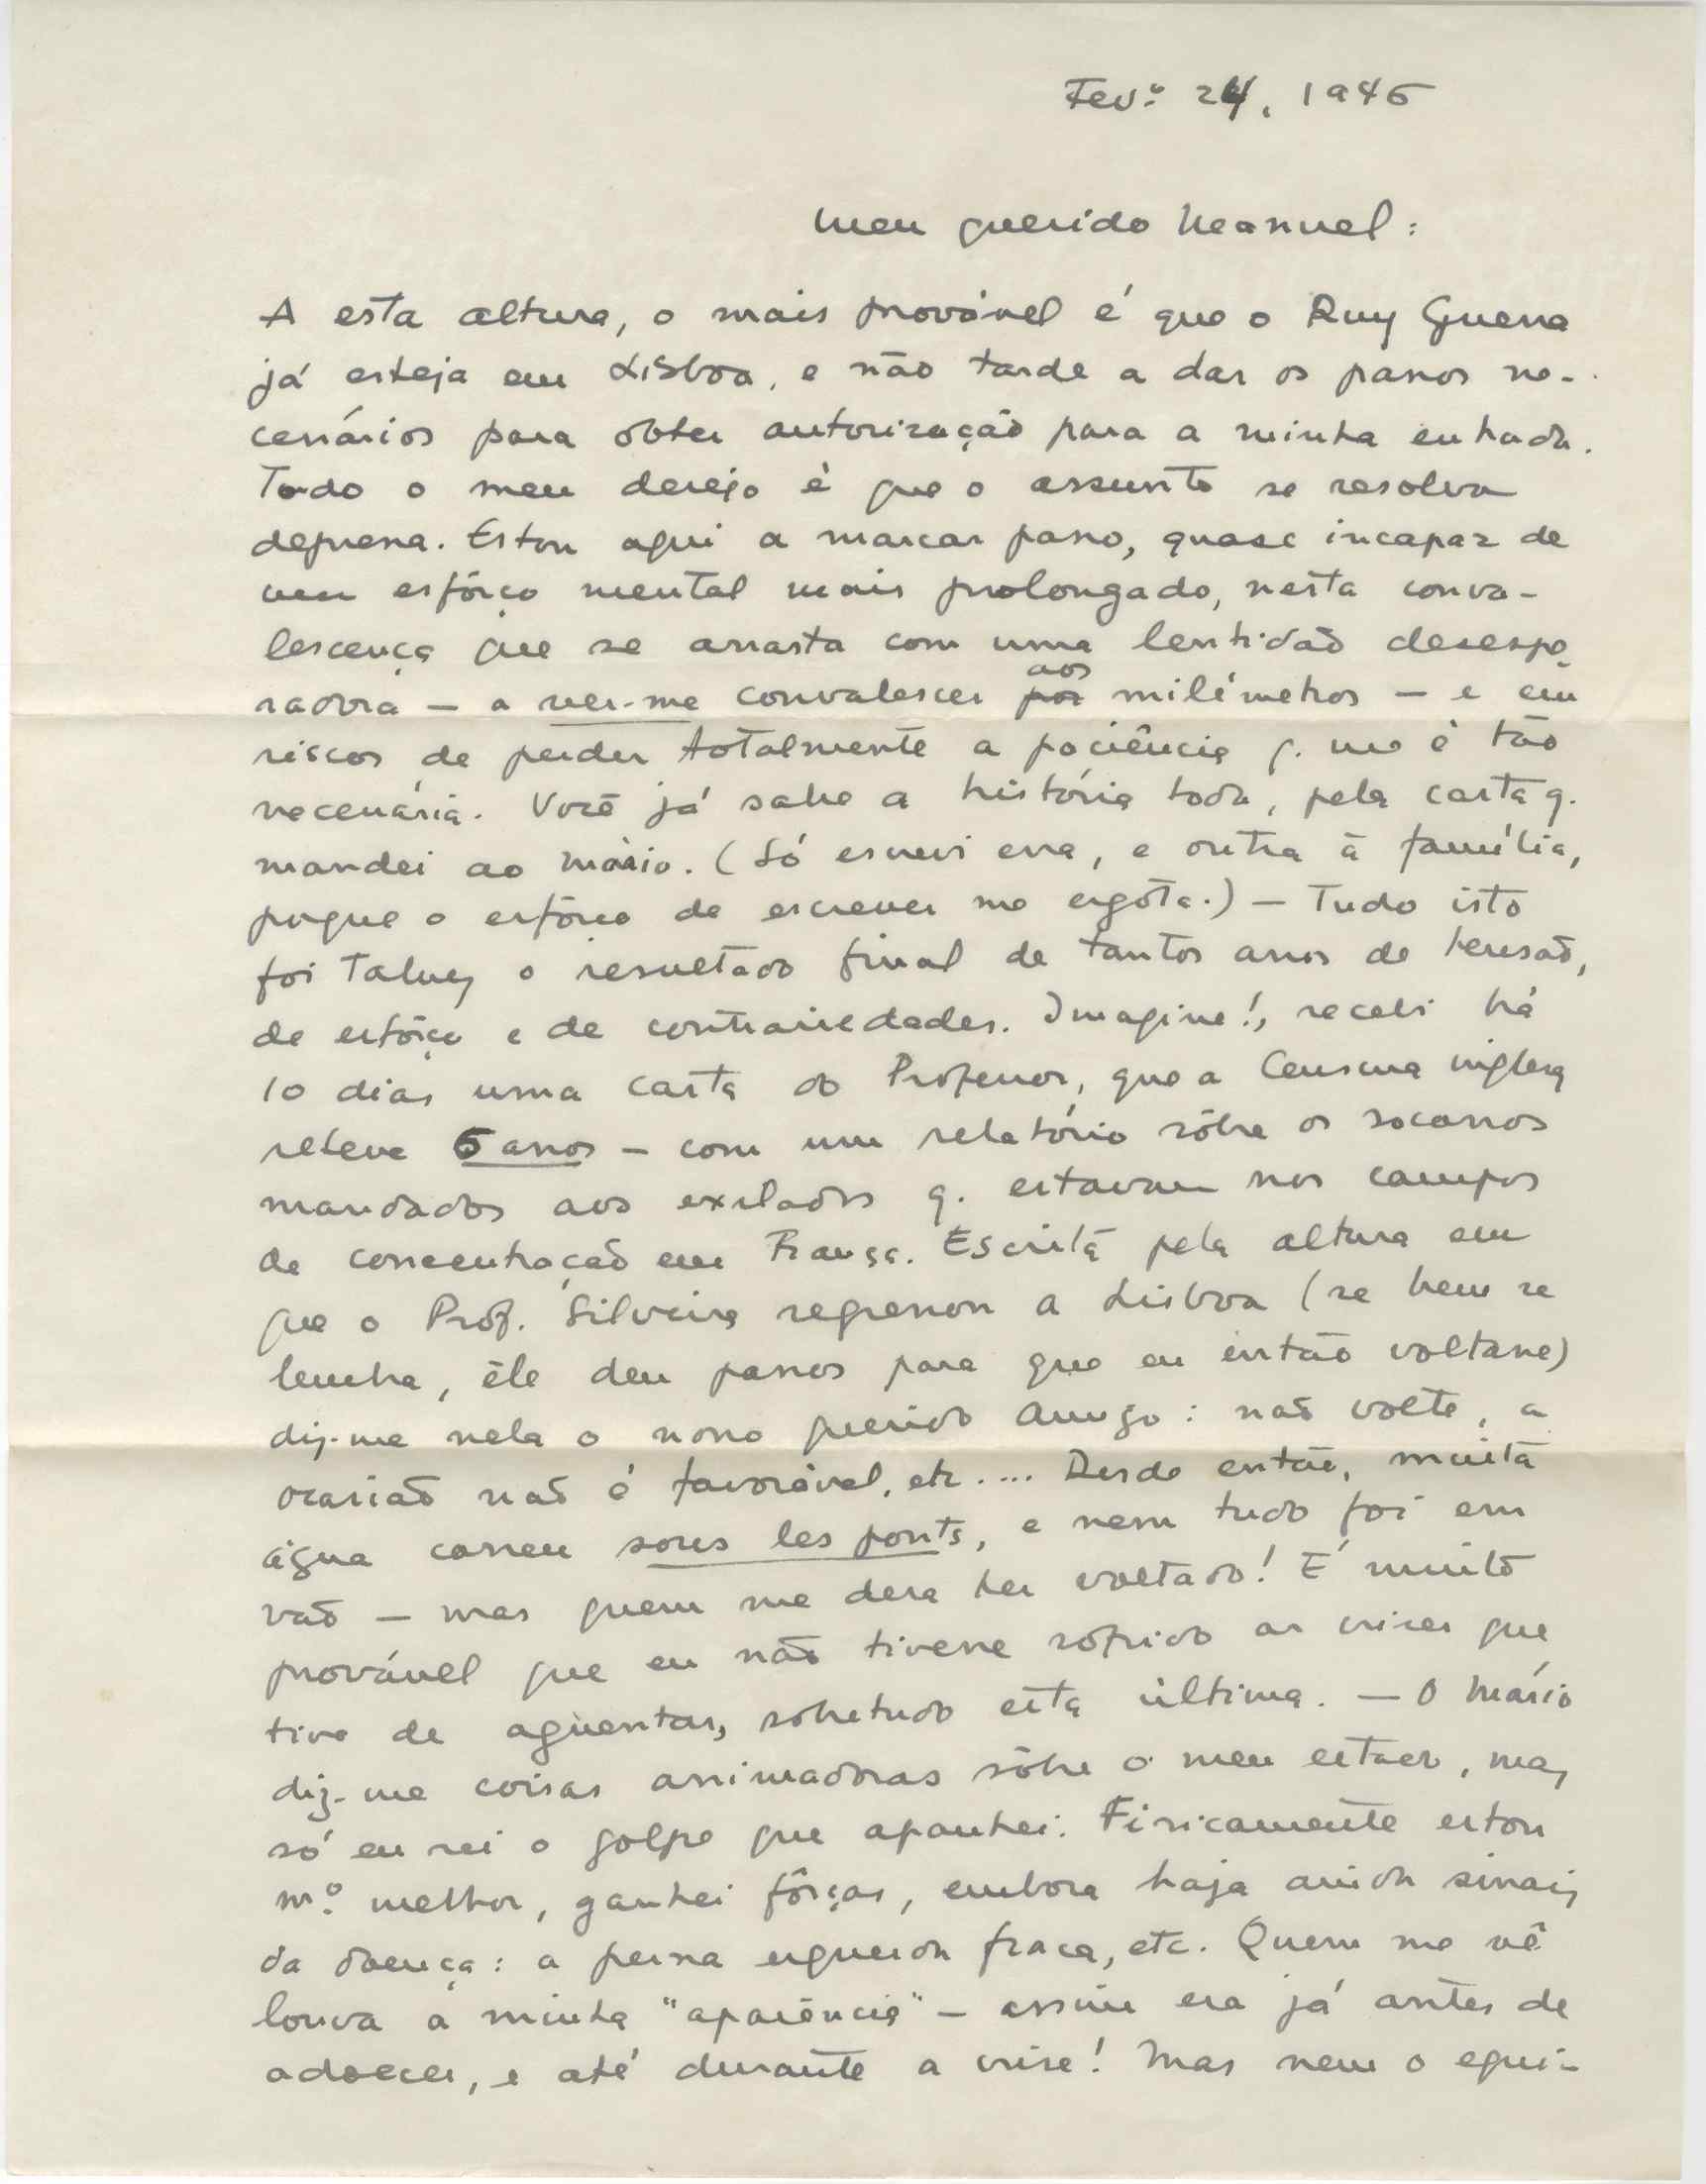 Fev.º 24, 1946
Meu querido Manuel:
A esta altura, o mais provável é que o Ruy Guerra
já esteja em Lisboa, e não tarde a dar os passos ne-
cessários para obter autorização para a minha entrada.
Todo o meu desejo é que o assunto se resolva
depressa. Estou aqui a marcar passo, quase incapaz de
um esfôrço mental mais prolongado, nesta conva-
lescença que se arrasta com uma lentidão desespe-
radora — a ver-me convalescer por aos milímetros — e em
riscos de perder totalmente a paciência q. me é tão
necessária. Você já sabe a história toda, pela carta q.
mandei ao Mário. (Só escrevi essa, e outra à família,
pqque o esfôrço de escrever me esgóta.) — Tudo isto
foi talvez o resultado final de tantos anos de tensão,
de esfôrço e de contrariedades. Imagine!, recebi há
10 dias uma carta do Professor, que a Censura inglesa
reteve 5 anos — com um relatório sôbre os socorros
mandados aos exilados q. estavam nos campos
de concentração em França. Escrita pela altura em
que o Prof. Silveira regressou a Lisboa (se bem se
lembra, êle deu passos para que eu então voltasse)
diz-me nela o nosso querido Amigo: não volte, a
ocasião não é favorável, etc.... Desde então, muita
água correu sous les ponts, e nem tudo foi em
vão — mas quem me dera ter voltado! É muito
provável que eu não tivesse sofrido as crises que
tive de agüentar, sobretudo esta última. — O Mário
diz-me coisas animadoras sôbre o meu estado, mas
só eu sei o golpe que apanhei. Fisicamente estou
m.º melhor, ganhei fôrças, embora haja ainda sinais
da doença: a perna esquerda fraca, etc. Quem me vê
louva a minha "aparência" — assim era já antes de
adoecer, e até durante a crise! Mas nem o equi-